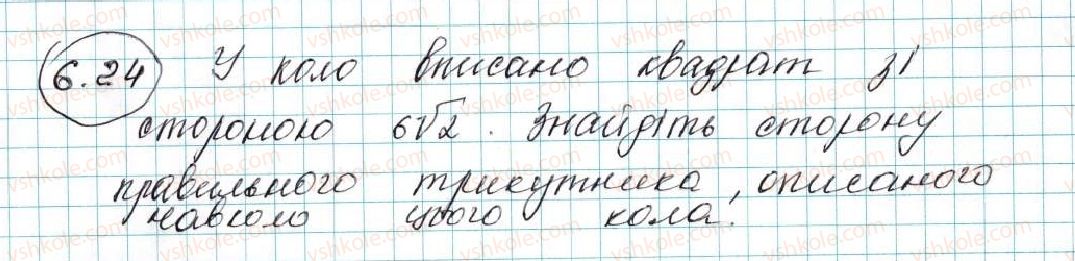 6.24 У коло вписано квадрат зі
стороною 6√2. Знайдіть сторону
правильного трикутника, описаного
навколо цього кола.